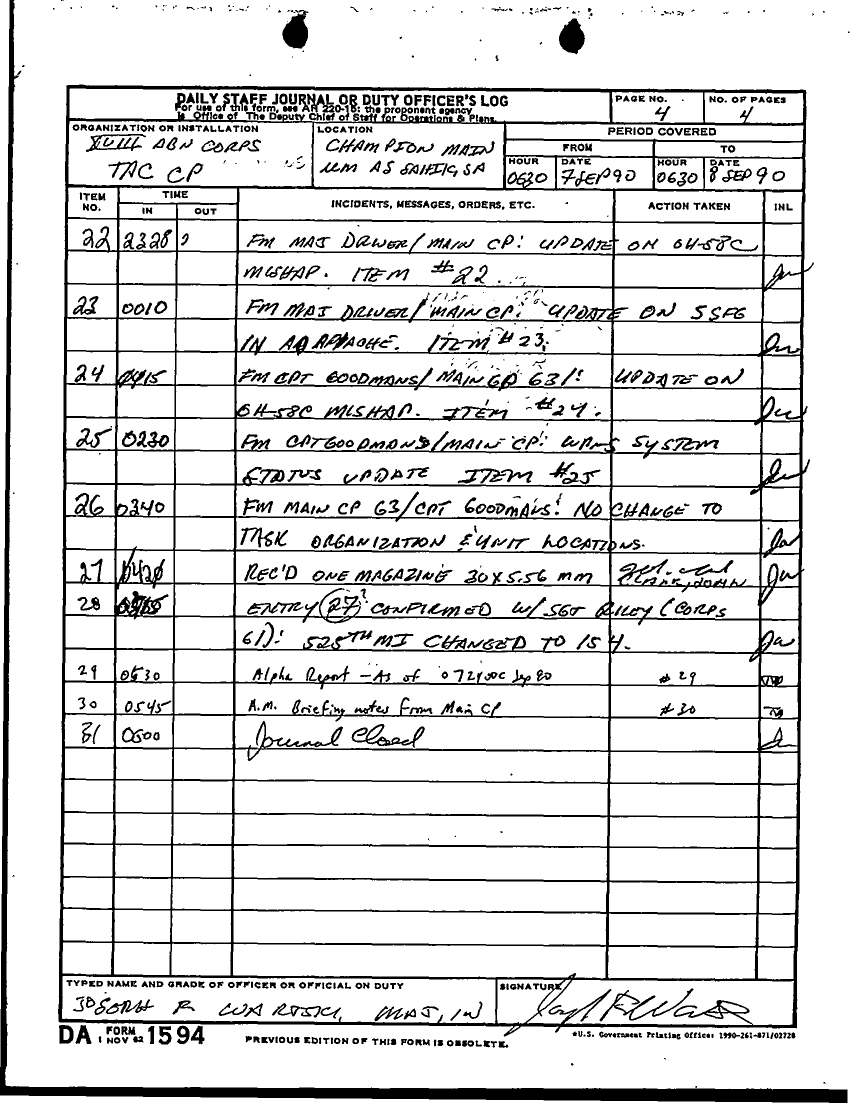 DAILY STAFF JOURNAL OR DUTY OFFICER'S LOG
For use of this form, see AR 220-15; the proponent agency
is Office of The Deputy Chief of Staff for Operations & Plans.
PAGE NO.
4
NO. OF PAGES
4
ORGANIZATION OR INSTALLATION
XVIII ABN CORPS
TAC CP
LOCATION
CHAMPION MAIN
SA
PERIOD COVERED
FROM TO
HOUR DATE HOUR DATE
0630 7 SEP 90 0630 8 SEP 90
ITEM NO. TIME IN OUT INCIDENTS, MESSAGES, ORDERS, ETC. ACTION TAKEN INL
22 2328 FM MAJ DRIVER/MAIN CP: UPDATE ON OH-58C
MISHAP. ITEM #22
23 0010 FM MAJ DRIVER/MAIN CP: UPDATE ON 5SFG
IN APACHE. ITEM #23.
24 FM CPT GOODMANS/MAIN CP G3/: UPDATE ON
OH-58C MISHAP. ITEM #24.
25 0230 FM CPT GOODMANS/MAIN CP: WPNS SYSTEM
STATUS UPDATE ITEM #25
26 0340 FM MAIN CP G3/CPT GOODMANS: NO CHANGE TO
TASK ORGANIZATION & UNIT LOCATIONS.
27 REC'D ONE MAGAZINE 30X5.56 MM
28 ENTRY 27 CONFIRMED W/SGT RILEY (CORPS
G1): 525TH MI CHANGED TO 154.
29 0530 Alpha Report - As of 072400C Sep 90 #29
30 0545 A.M. Briefing notes From Main CP #30
31 0600 Journal Closed
TYPED NAME AND GRADE OF OFFICER OR OFFICIAL ON DUTY
JOSEPH R MAJ, IN
SIGNATURE
DA FORM 1594
1 NOV 62
PREVIOUS EDITION OF THIS FORM IS OBSOLETE.
*U.S. Government Printing Office: 1990-261-871/02728